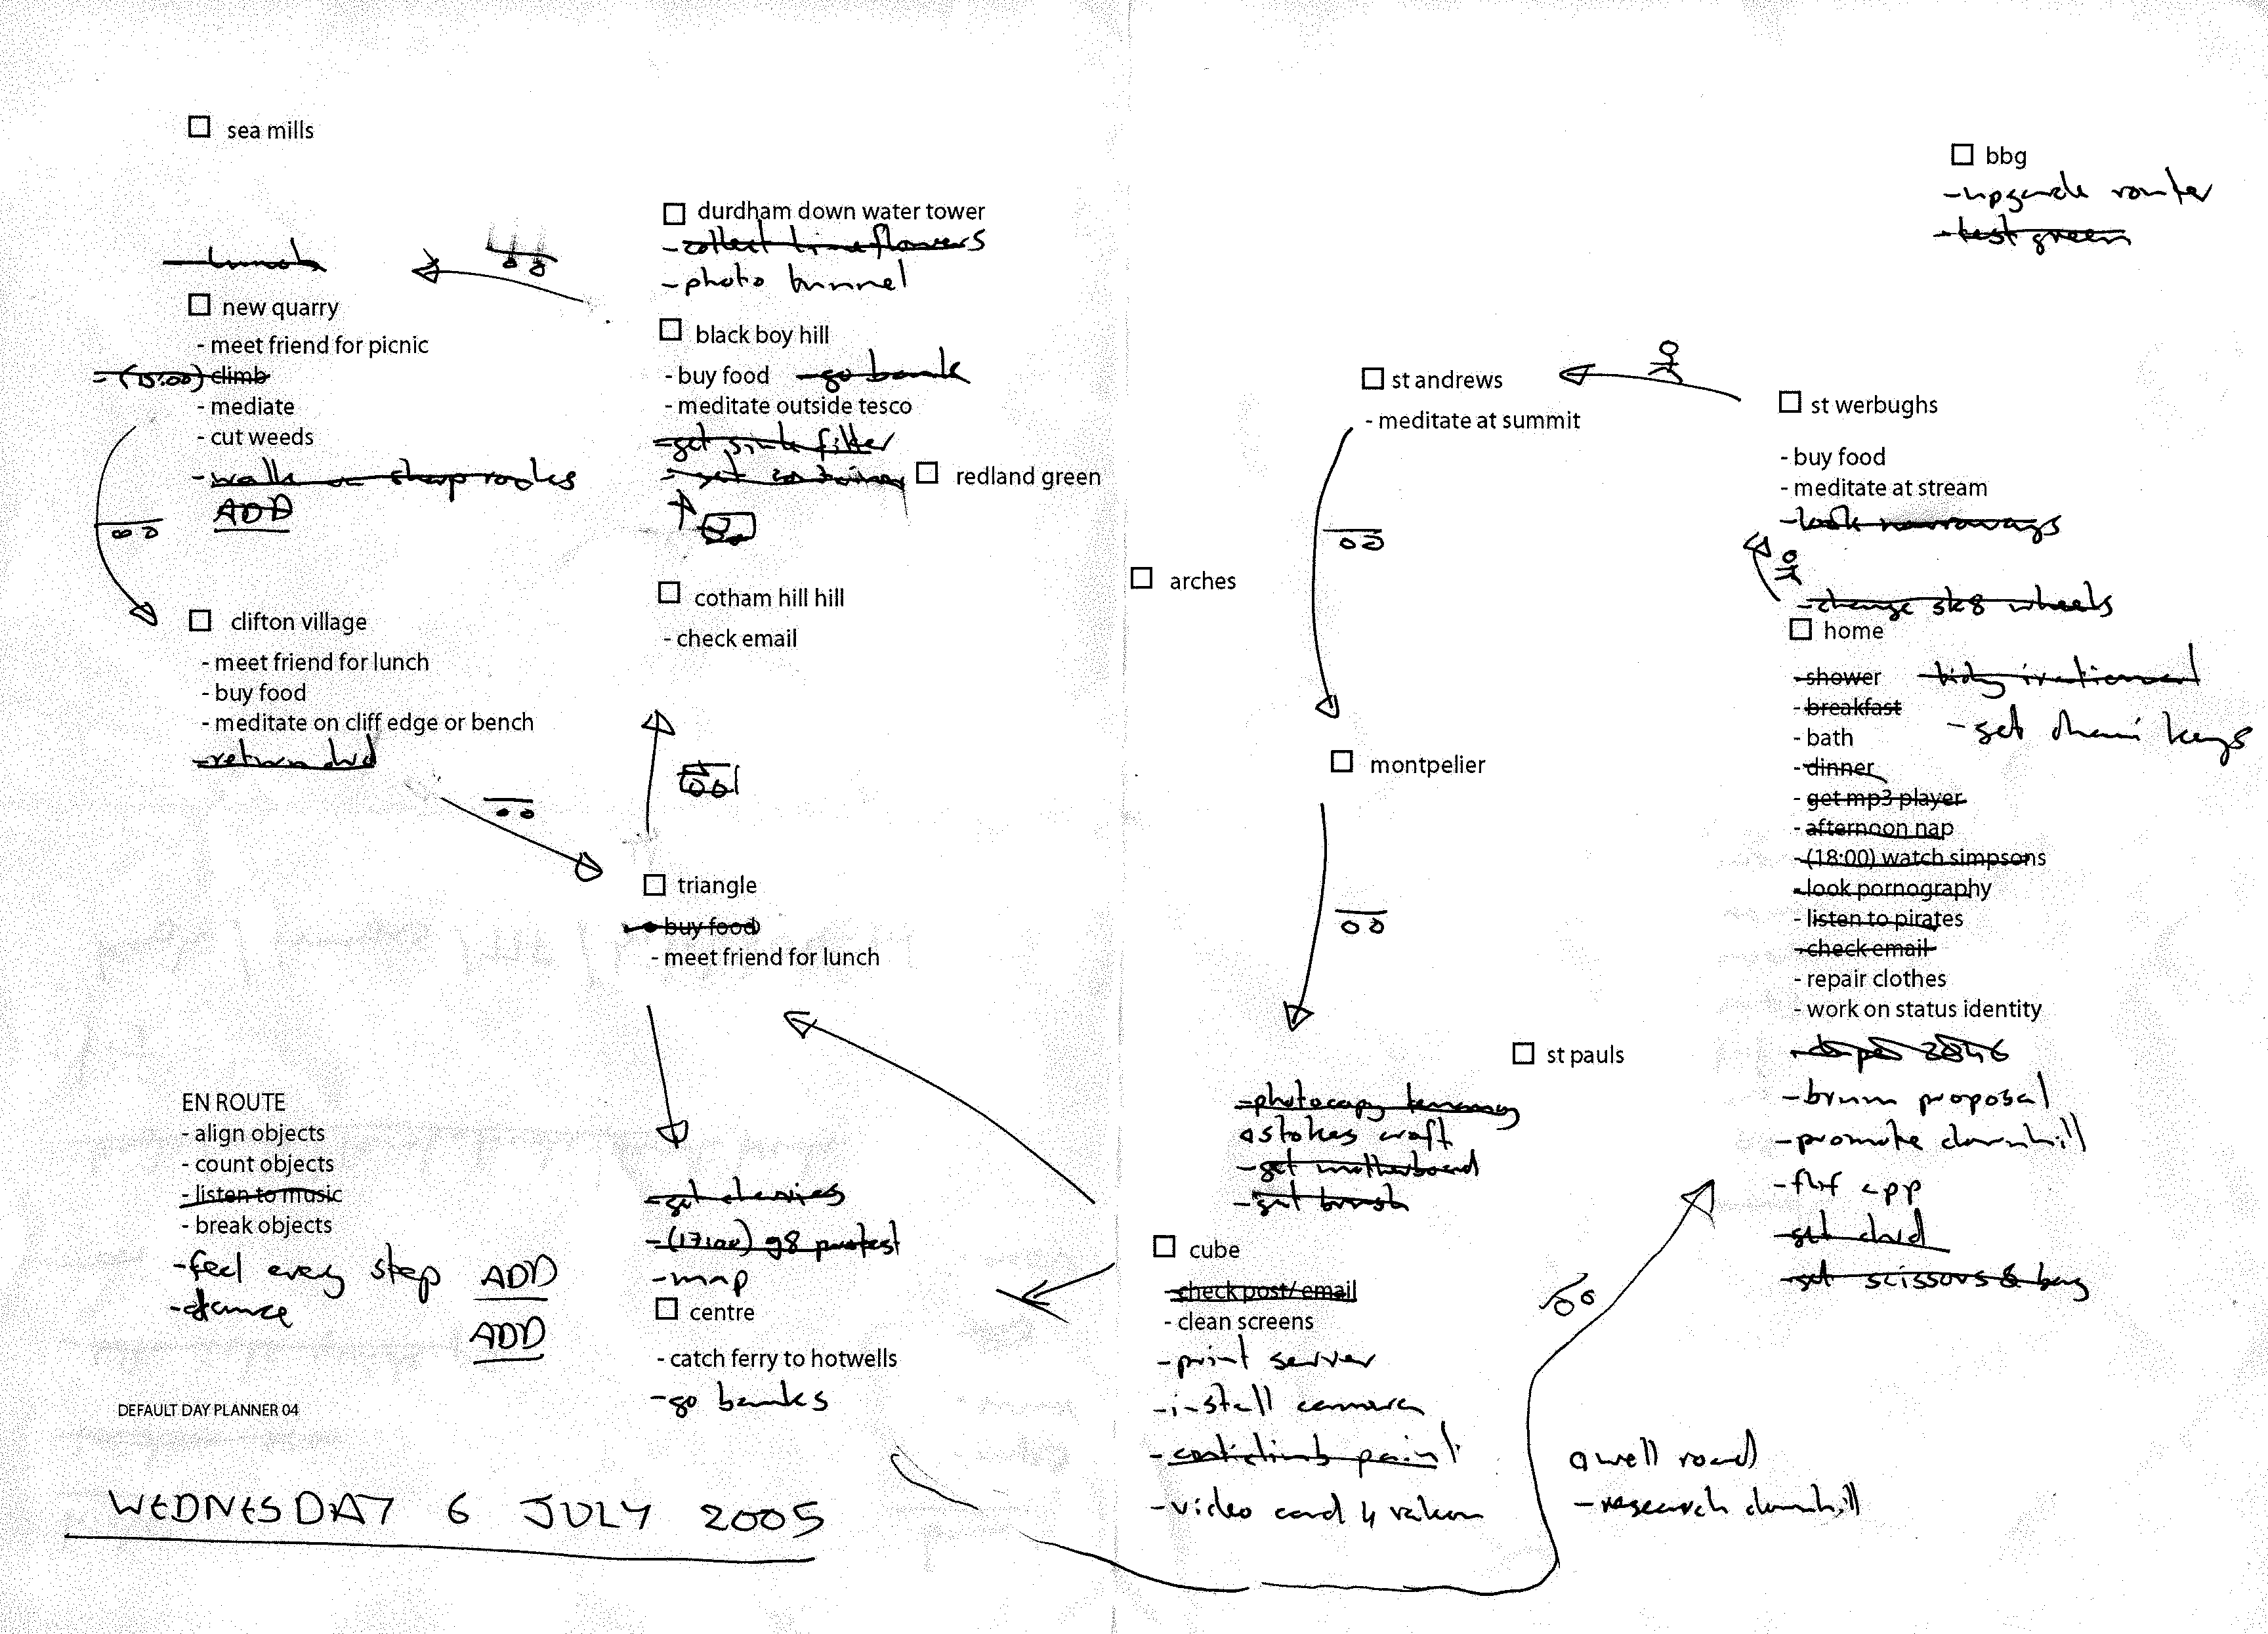 sea mills
- lunch
new quarry
- meet friend for picnic
- (15:00) climb
- mediate
- cut weeds
- walk on sharp rocks
ADD
clifton village
- meet friend for lunch
- buy food
- meditate on cliff edge or bench
- return dvd
EN ROUTE
- align objects
- count objects
- listen to music
- break objects
- feel every step ADD
- dance ADD
DEFAULT DAY PLANNER 04
WEDNESDAY 6 JULY 2005
durdham down water tower
- collect lime flowers
- photo tunnel
black boy hill
- buy food - go bank
- meditate outside tesco
- get sink filter
- get container
redland green
cotham hill hill
- check email
triangle
- buy food
- meet friend for lunch
- get cherries
- (17:00) g8 protest
- map
centre
- catch ferry to hotwells
- go banks
arches
st andrews
- meditate at summit
montpelier
st pauls
- photocopy
stokes croft
- get motherboard
- get brush
cube
- check post/email
- clean screens
- print server
- install camera
- anticlimb paint
- video card 4
well road
- research downhill
bbg
- upgrade router
- test green
st werbughs
- buy food
- meditate at stream
- look narroways
- change sk8 wheels
home
- shower - tidy irrational
- breakfast
- bath - get keys
- dinner
- get mp3 player
- afternoon nap
- (18:00) watch simpsons
- look pornography
- listen to pirates
- check email
- repair clothes
- work on status identity
- brum proposal
- promote downhill
- app
- get dvd
- get scissors & bag